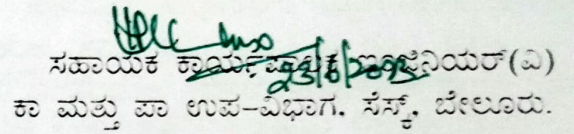 ಸಹಾಯಕ ಕಾರ್ಯಪಾಲಕ ಇಂಜಿನಿಯರ್(ವಿ)
ಕಾ ಮತ್ತು ಪಾ ಉಪ-ವಿಭಾಗ. ಸೆಸ್ಕ್. ಬೇಲೂರು.